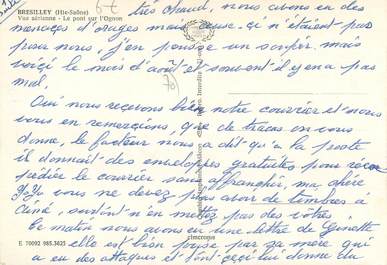 BRESILLEY (Hte-Saône)
Vue aérienne - Le pont sur l'Ognon
très chaud, nous avons eu des
menaces d'orages mais ça n'étaient pas
pour nous, j'en pousse un soupir, mais
voici le mois d'août et souvent il y en a pas
mal.
Oui nous recevons bien notre courrier et nous
vous en remercions, que de tracas on vous
donne, le facteur nous a dit qu'à la poste
il donnait des enveloppes gratuites pour
le courrier sans affranchir, ma chère
vous ne devez pas avoir de timbres à
n'en mettez pas des vôtres
Ce matin nous avons eu une lettre de Ginette
elle est bien prise par sa mère qui
a eu des attaques et dont ceci lui donne du
E 70092 985.3625
cim